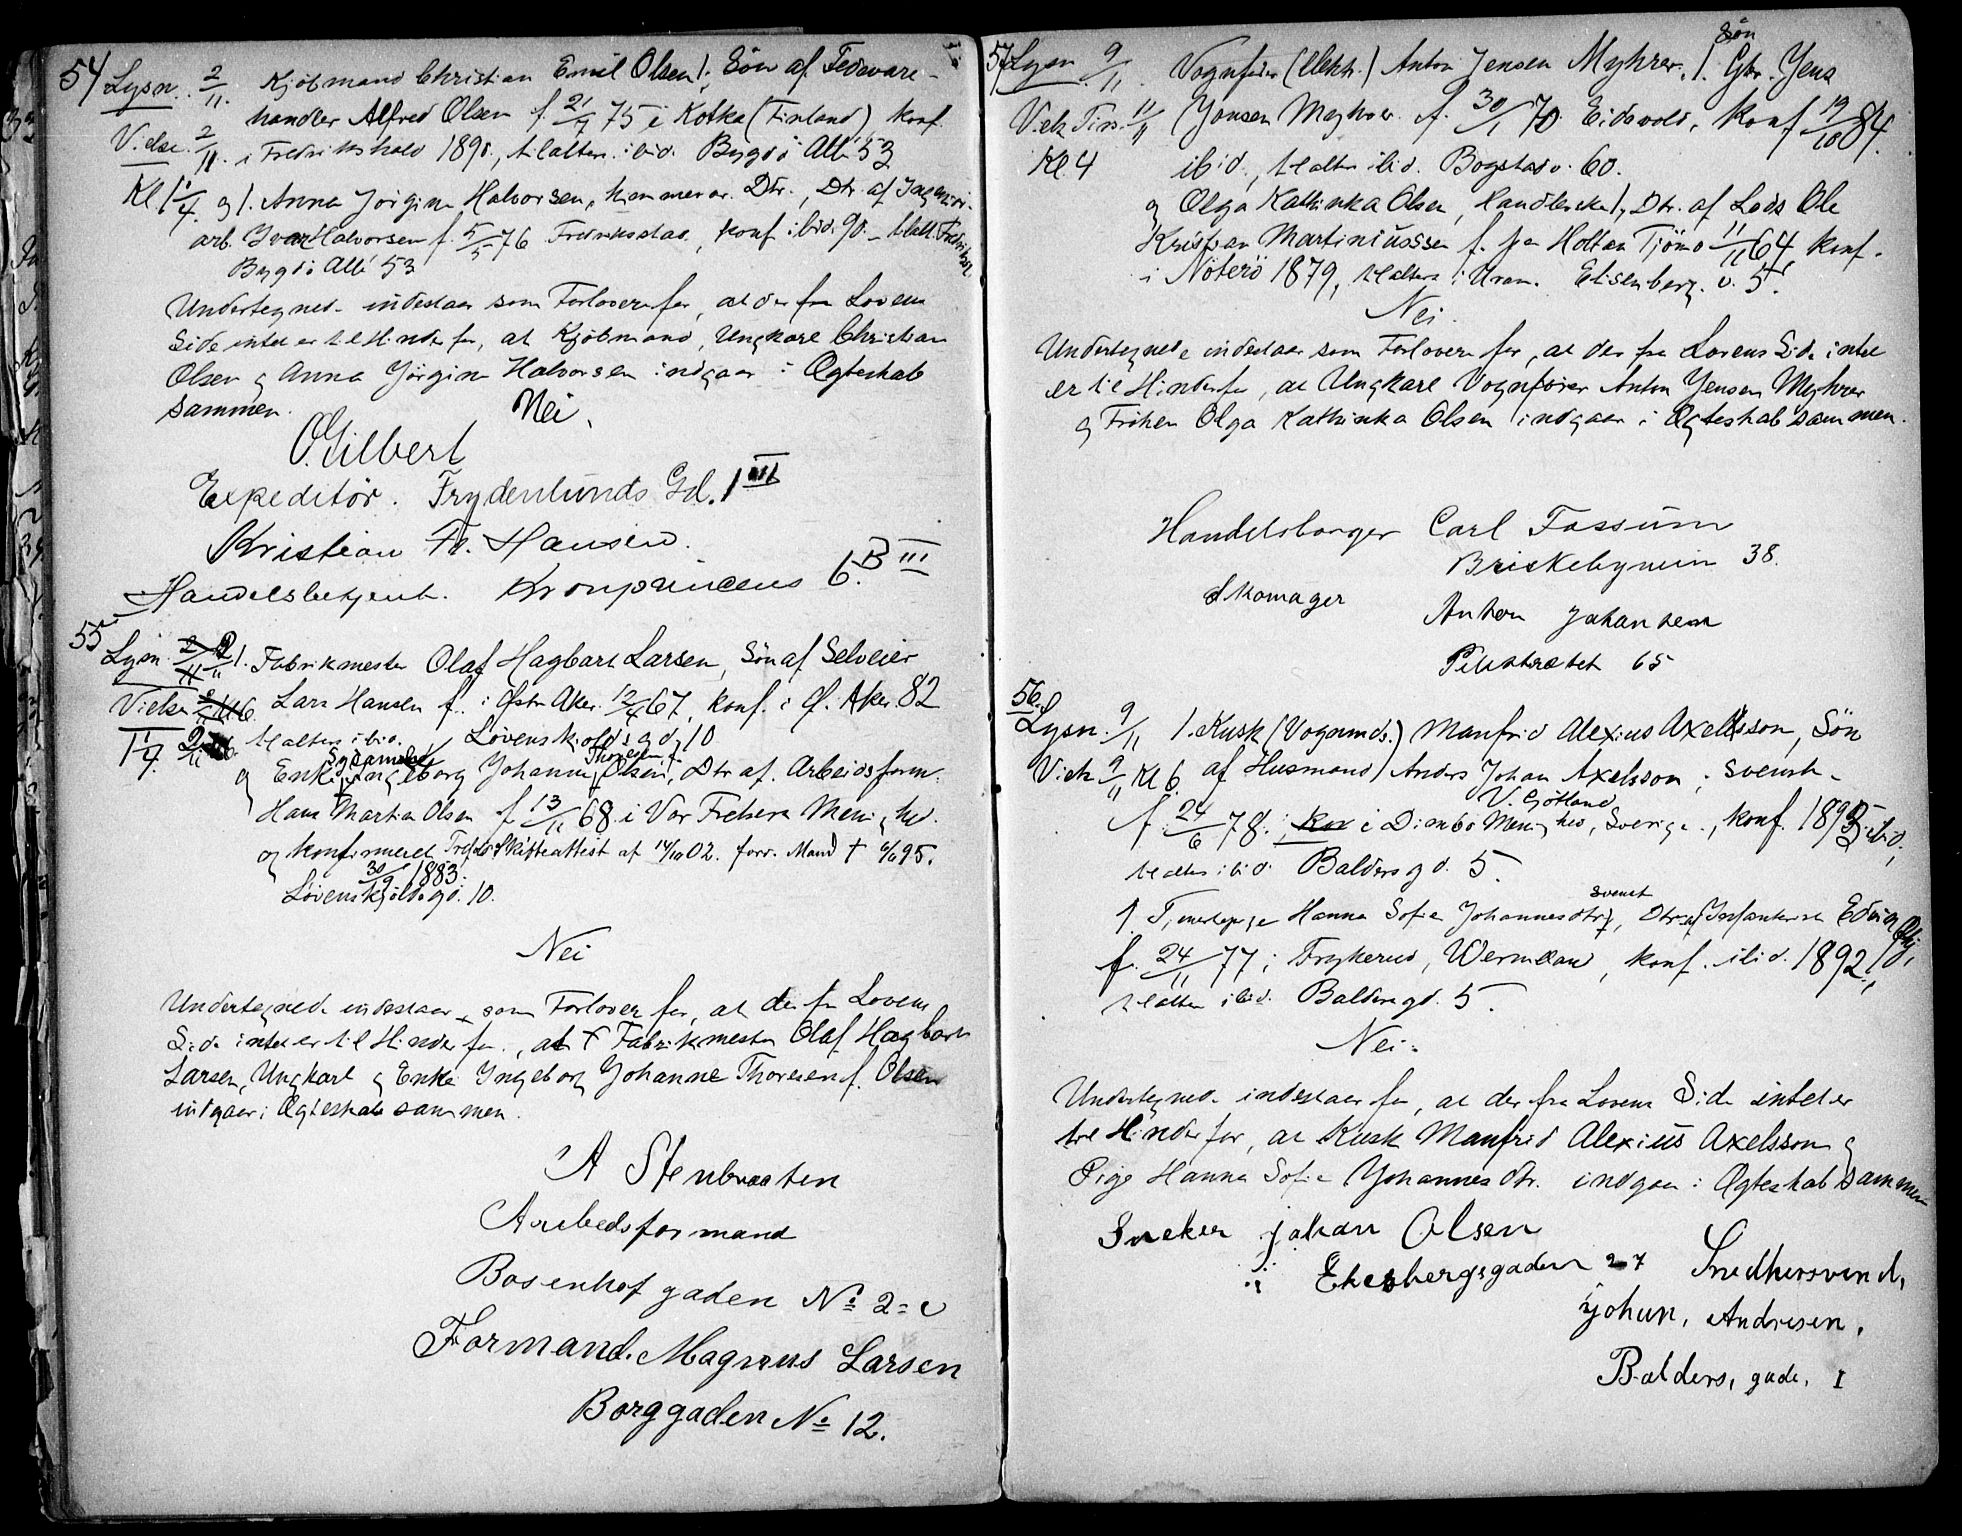 54 Lysn. 2/11. Kjöbmand Christian Emil Olsen/; Sön af Fedevare-
handler Alfred Olsen f. 21/7 75 i Kotka (Finland) konf
Vielse 2/11. i Fredrikshald 1890, tilalters ibid. Bygdö Allé 53
Kl. 1 1/4. og /. Anna Jörgine Halvorsen, hjemmevær. Dtr., Dtr. af
arb. Ivar Halvorsen f. 5/5 76 Fredrikstad, konf ibid. 90 – t. alt.
Bygdö Allé 53
Undertegnede indestaar som Forlovere for, at der fra Lovens
Side intet er til Hinder for, at Kjöbmand, Ungkarl Christian
Olsen og Anna Jörgine Halvorsen indgaar i Ægteskab
sammen.
Nei.
O. Gilbert
Expeditör. Frydenlunds Gd. 1 III
Kristian Fr. Hansen.
Handelsbetjent. Kronprincens 6. B III
55 Lysn. 2/11 9/11 /. Fabrikmester Olaf Hagbart Larsen, Sön af Selveier
Vielse Lars Hansen f. i Östre Aker 12/4 67, konf. i Ö. Aker 82
tilalters ibid. Løvenskiolds gd. 10
Syerske Thoresen f.
og Enke Ingeborg Johanne Olsen, Dtr af. Arbeidsform.
Hans Martin Olsen f 13/11 68 i Vor Frelsers Menighed.
og konfirmeret Skifteattest af 14/10 02. forr. Mand † 95.
30/9 1883.
Løvenskjoldsgd. 10.
Nei
Undertegnede indestaar som Forlover for, at der fra Lovens
Side intet er til Hinder for, at Fabrikmester Olaf Hagbart
Larsen, Ungkarl og Enke Ingeborg Johanne Thoresen f. Olsen
indgaar i Ægteskab sammen.
A Stenbraaten
Arbedsformand
Bosenhof gaden No 2 = c
Formand. Magnus Larsen
Borggaden No 12.
57 Lysn 9/11 Vognfører (Elektr.) Anton Jensen Myhrer, /. Sön Gbr. Jens
Viels Tirs. 11/11 Jensen Myhrer. f. 30/1 70 Eidsvold, konf 19/10 84.
Kl. 4 ibid., tilalters ibid. Bogstadv. 60.
og Olga Kathinka Olsen, Handlerske /, Dtr. af Lods Ole
Kristian Martiniussen f. paa Holtan Tjömö 11/11 64, konf.
i Nöterö 1879, tilalters i Uran. Elisenberg. v. 5.
Nei.
Undertegnede indestaar som Forlovere for, at der fra Lovens Side intet
er til Hinder for, at Ungkarl Vognfører Anton Jensen Myhrer
og Fröken Olga Kathinka Olsen indgaar i Ægteskab sammen.
Handelsborger Carl Fossum
Briskebyveien 38.
Skomager Anton Johansen
Pilestrædet 65
56.
Lysn. 9/11 /. Kusk (Vognmds.) Manfrid Alexius Axelsson, Sön
Viels 9/11 Kl 6. af Husmand / Anders Johan Axelsson, svensk-
V. Götland
f. 24/6 78. i Dimbo Menighed, Sverige., konf. 1893 ibid,
tilalters ibid. Baldersgd. 5.
svensk
/. Tjenestepige Hanna Sofie Johannesdtr, Dtr af Infanterist
f. 24/11 77 i Frykerud, Wermland, konf. ibid. 1892,
tilalters ibid. Baldersgd. 5.
Nei.
Undertegnede indestaar for, at der fra Lovens Side intet er
til Hinder for, at Kusk Manfrid Alexius Axelsson og
Pige Hanna Sofie Johannesdtr. indgaar i Ægteskab sammen
Sneker johan Olsen
Ekebergsgaden 27 Snedkersvend,
johan, Andresen,
Balders, gade, I